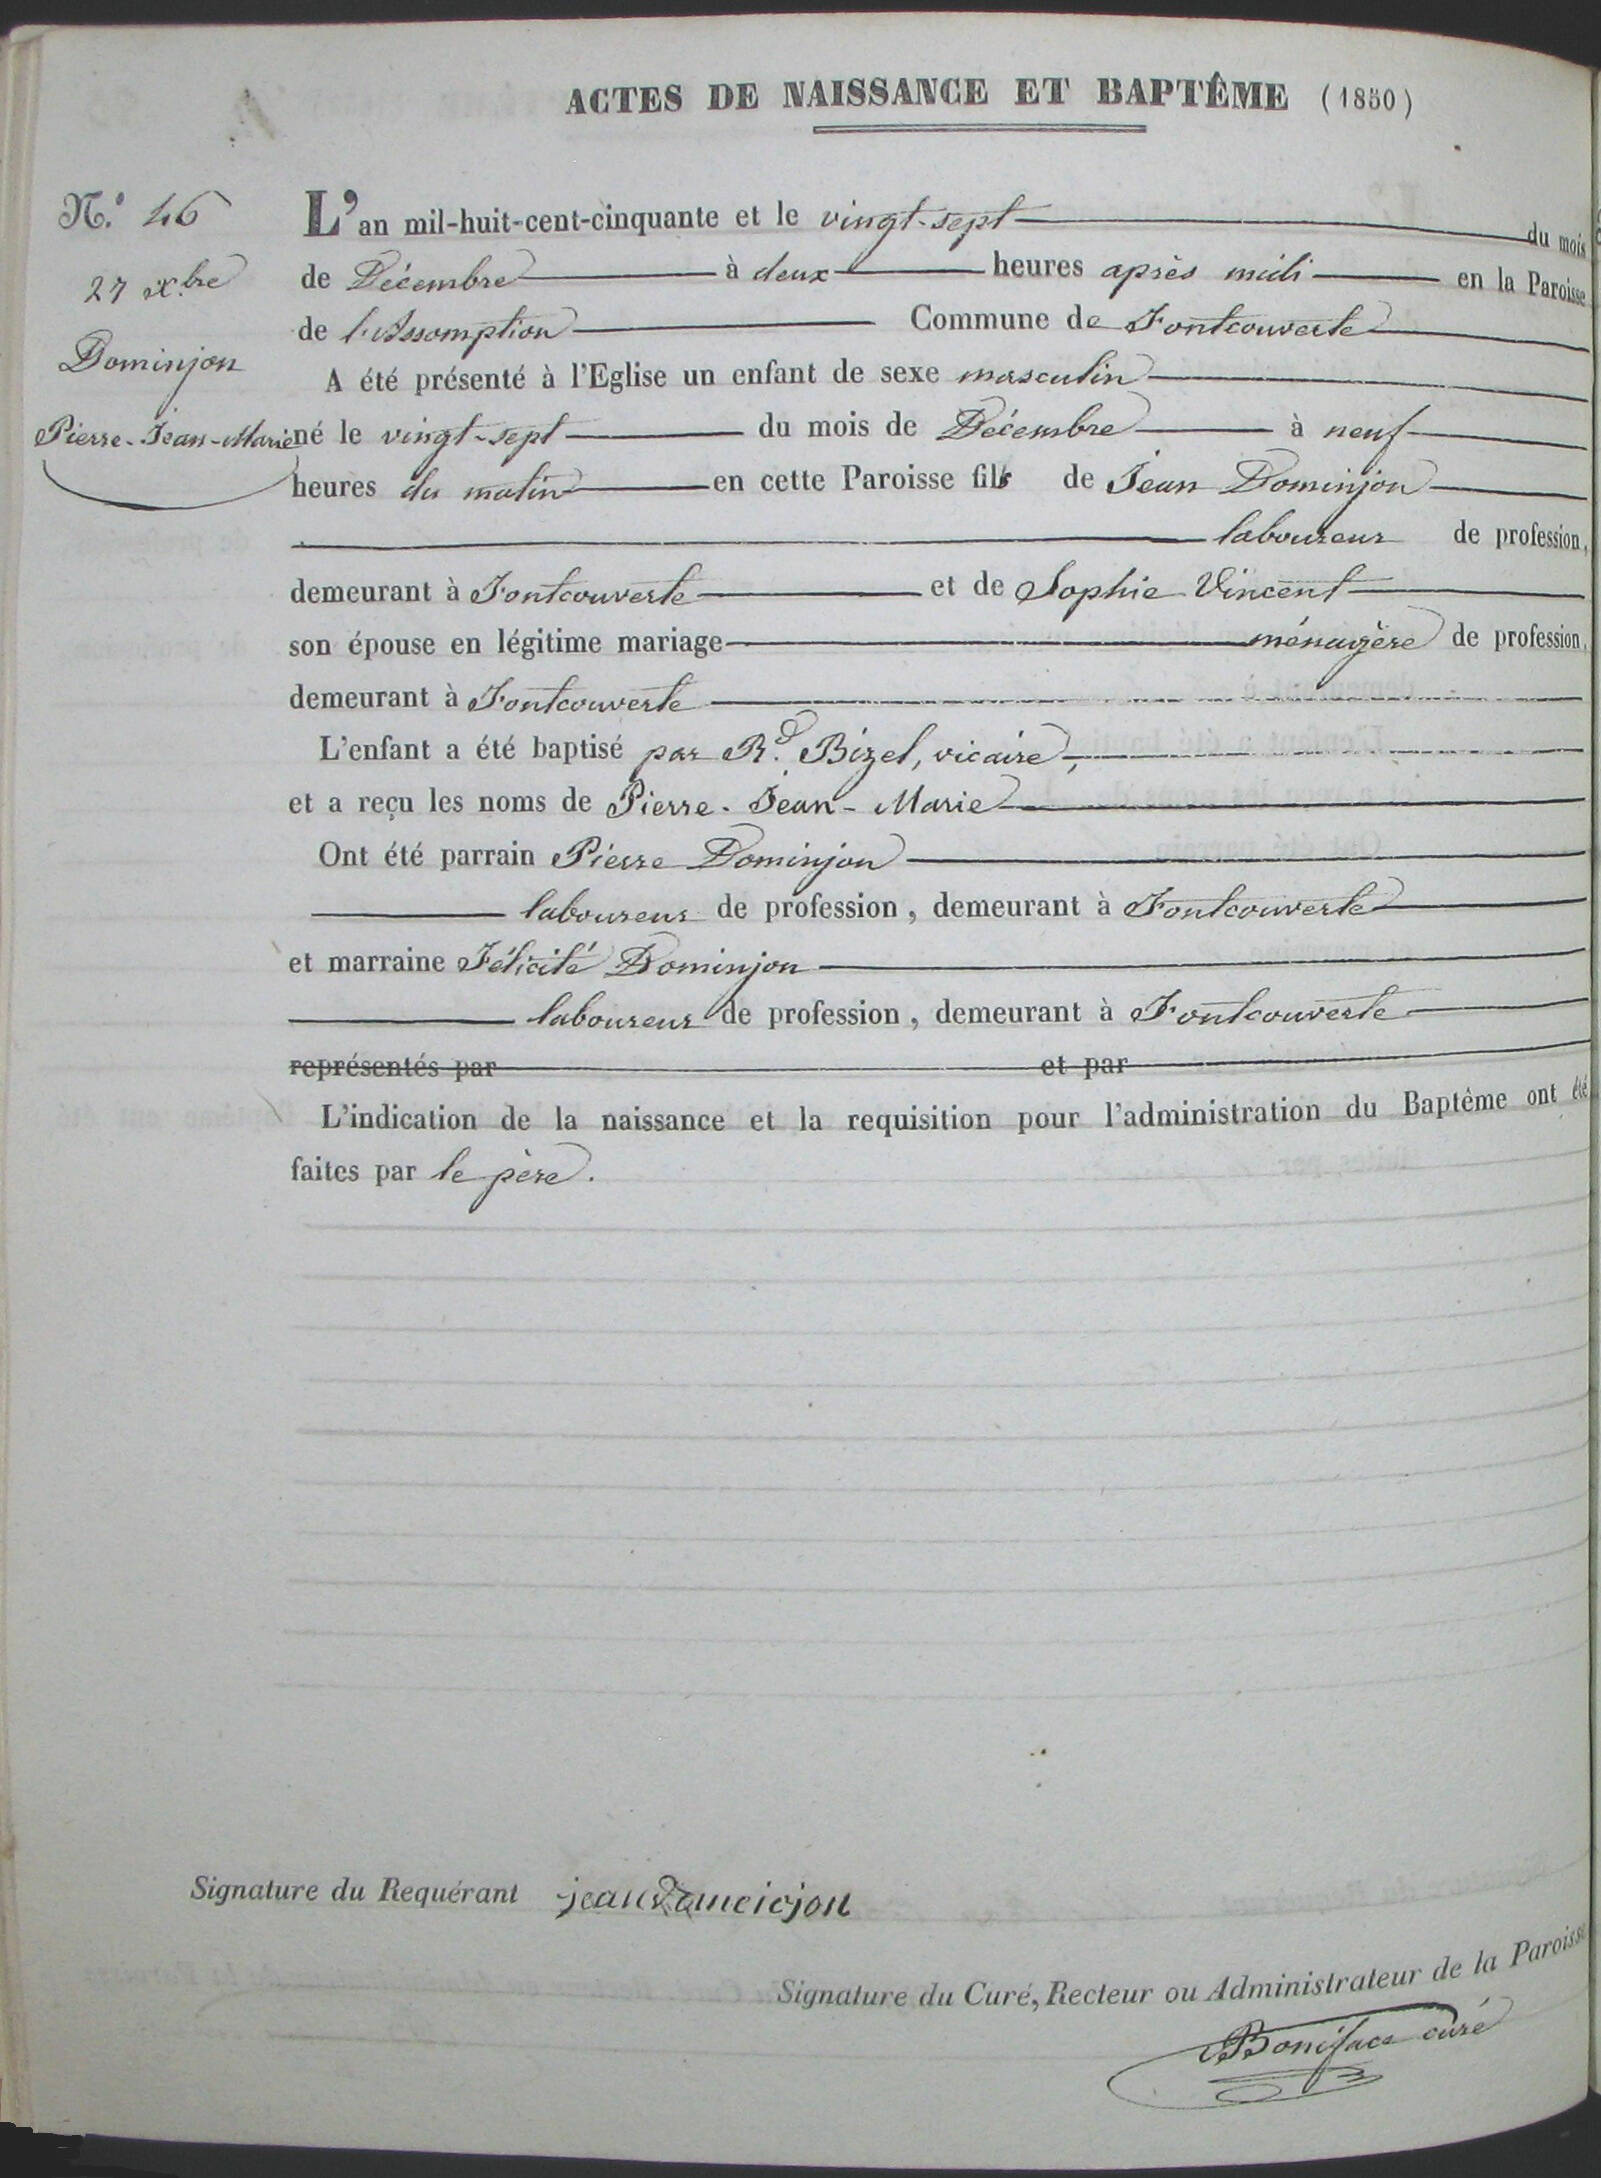 ACTES DE NAISSANCE ET BAPTÊME (1850)
N.° 46
27 x.bre
Dominjon
Pierre-Jean-Marie
L'an mil-huit-cent-cinquante et le vingt-sept du mois
de Décembre à deux heures après midi en la Paroisse
de l'Assomption Commune de Fontcouverte
A été présenté à l'Eglise un enfant de sexe masculin
né le vingt-sept du mois de Décembre à neuf
heures du matin en cette Paroisse fils de Jean Dominjon
laboureur de profession,
demeurant à Fontcouverte et de Sophie Vincent
son épouse en légitime mariage ménagère de profession,
demeurant à Fontcouverte
L'enfant a été baptisé par R.d Bizel, vicaire,
et a reçu les noms de Pierre-Jean-Marie
Ont été parrain Pierre Dominjon
laboureur de profession, demeurant à Fontcouverte
et marraine Félicité Dominjon
laboureur de profession, demeurant à Fontcouverte
représentés par et par
L'indication de la naissance et la requisition pour l'administration du Baptême ont été
faites par le père.
Signature du Requérant jean
Signature du Curé, Recteur ou Administrateur de la Paroisse
Boniface curé